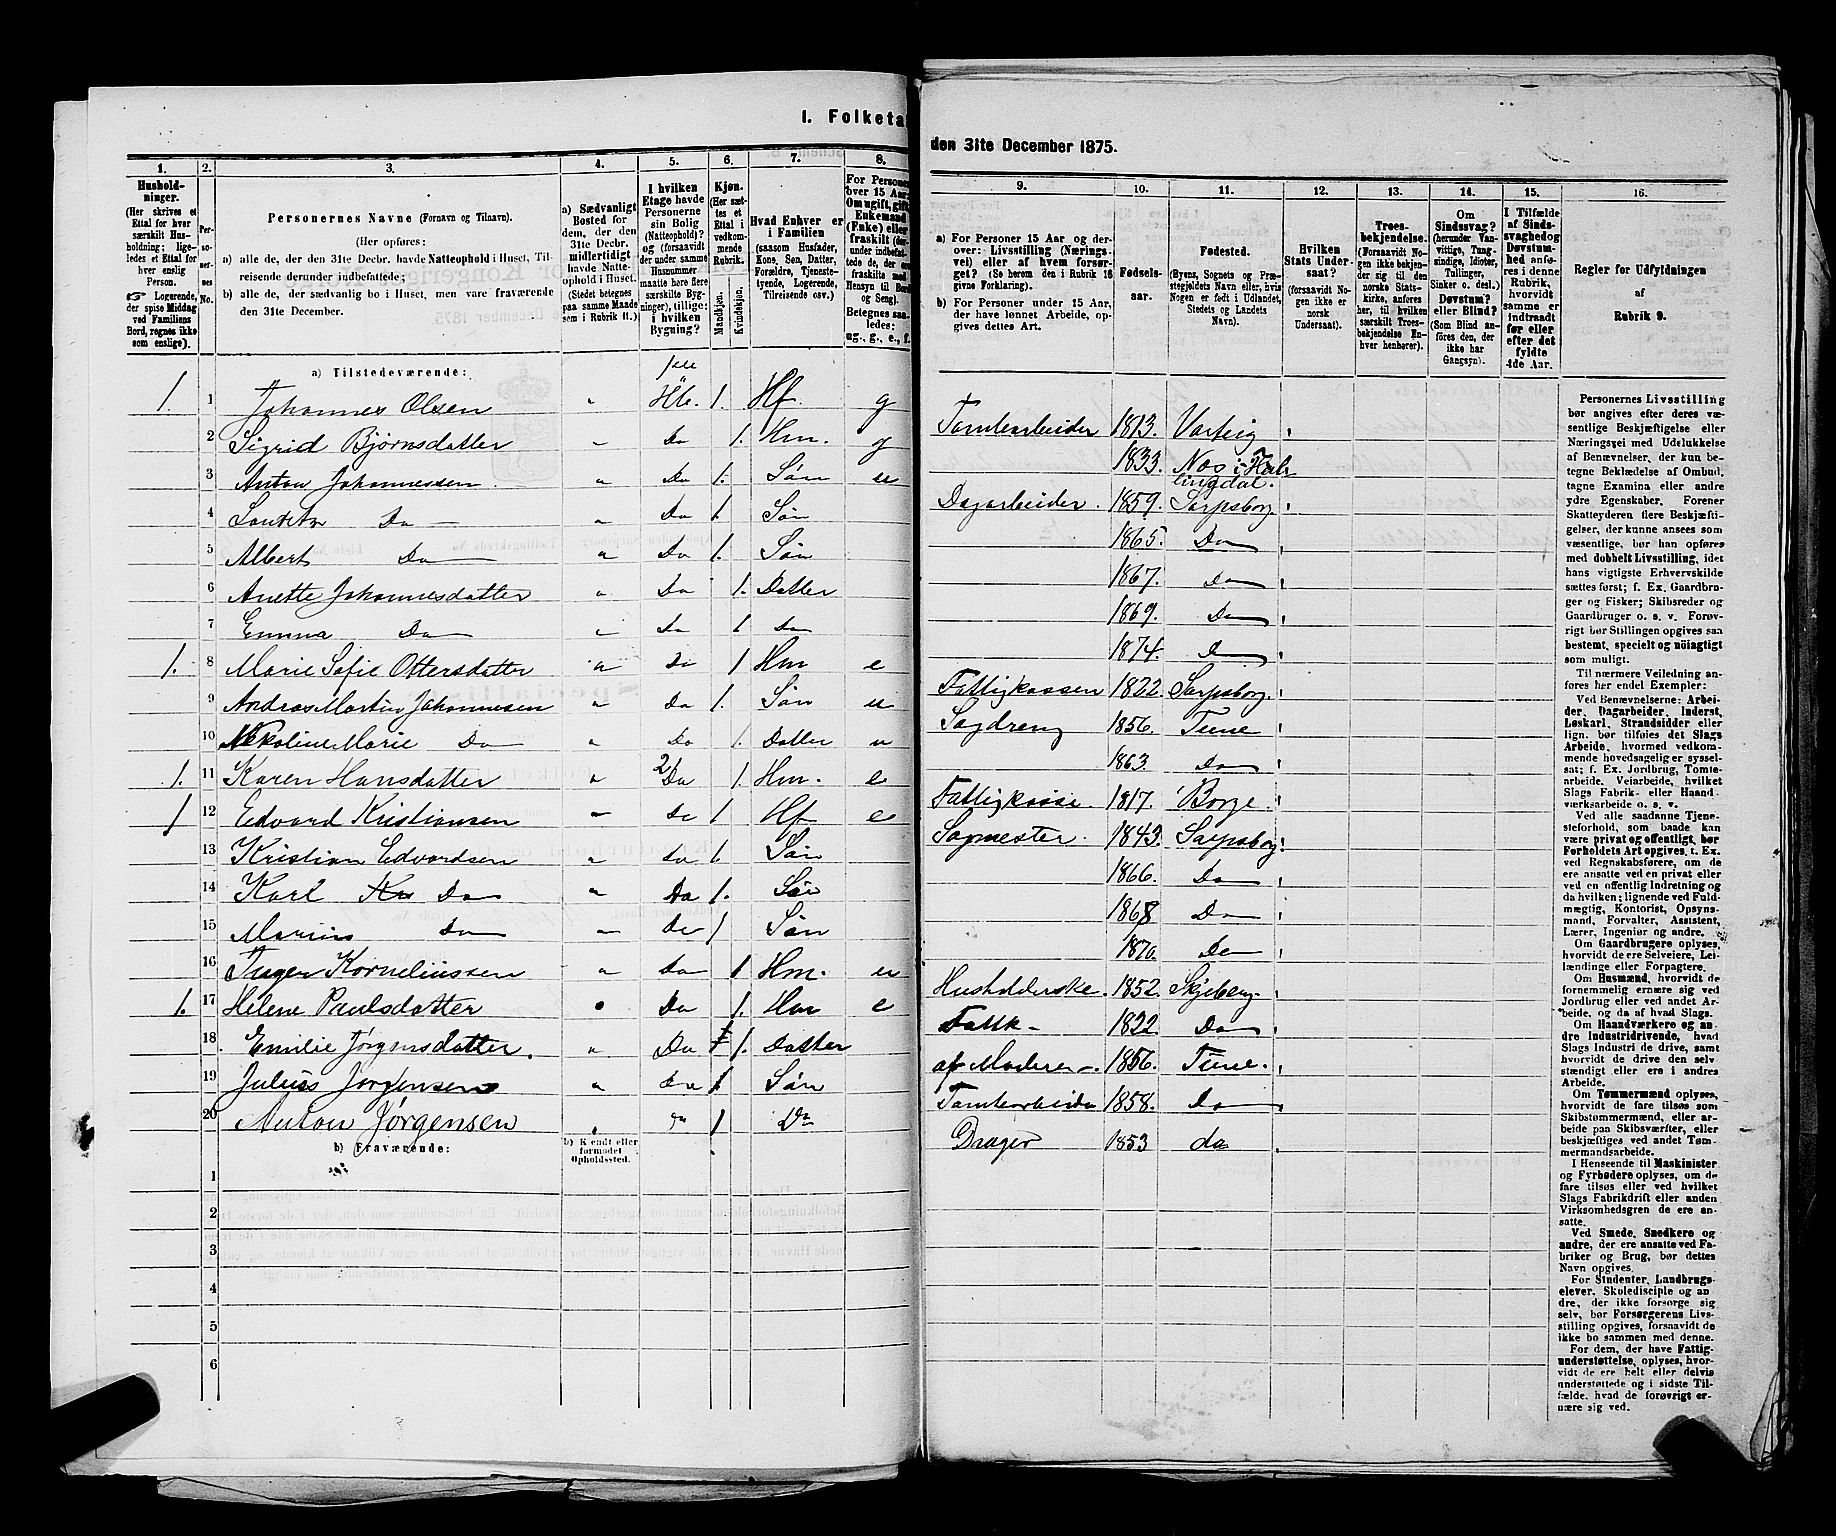 I. Folketal
den 31te December 1875.
1. 2. 3. 4. 5. 6. 7. 8. 9. 10. 11. 12. 13. 14. 15. 16.
Hushold-
ninger.
(Her skrives et
Ettal for hver
særskilt Hus-
holdning; lige-
ledes et Ettal for
hver enslig
Person.
☞ Logerende,
der spise Middag
ved Familiens
Bord, regnes ikke
som enslige).
Per-
so-
ner-
nes
No.
Personernes Navne (Fornavn og Tilnavn).
(Her opføres:
a) alle de, der den 31te Decbr. havde Natteophold i Huset, Til-
reisende derunder indbefattede;
b) alle de, der sædvanlig bo i Huset, men vare fraværende
den 31te December.
a) Sædvanligt
Bosted for
dem, der den
31te Decbr.
midlertidigt
havde Natte-
ophold i Huset.
(Stedet betegnes
paa samme Maade
som i Rubrik 11.)
I hvilken
Etage havde
Personerne
sin Bolig
(Natteophold)?
og (forsaavidt
der under samme
Husnummer
maatte høre flere
særskilte Byg-
ninger), tillige:
i hvilken
Bygning?
Kjøn.
(Her sæt-
tes et
Ettal i
vedkom-
mende
Rubrik.
Mandkjøn.
Kvindekjøn.
Hvad Enhver er
i Familien
(saasom Husfader,
Kone, Søn, Datter,
Forældre, Tjeneste-
tyende, Logerende,
Tilreisende osv.)
For Personer
over 15 Aar
Om ugift, gift,
Enkemand
(Enke) eller
fraskilt
Betegnes saa-
ledes:
ug., g., e., f.
a) For Personer 15 Aar og der-
over: Livsstilling (Nærings-
vei) eller af hvem forsør-
get? (Se herom den i Rubrik 16
givne Forklaring).
b) For Personer under 15 Aar,
der have lønnet Arbeide, op-
gives dettes Art.
Fødsels-
aar.
Fødested.
(Byens, Sognets og Præ-
stegjeldets Navn eller, hvis
Nogen er født i Udlandet,
Stedets og Landets
Navn).
Hvilken
Stats Under-
saat?
(forsaavidt No-
gen ikke er
norsk
Undersaat).
Troes-
bekjendelse.
(Forsaavidt No-
gen ikke bekjen-
der sig til den
norske Stats-
kirke, anføres
her, til hvilken
særskilt Troes-
bekjendelse En-
hver henhører).
Om
Sindssvag?
(herunder Van-
vittige, Tung-
sindige, Idioter,
Tullinger,
Sinker o. desl.)
Døvstum?
eller Blind?
(Som Blind an-
føres den, der
ikke har
Gangsyn).
I Tilfælde
af Sinds-
svaghed og
Døvstum-
hed anfø-
res i denne
Rubrik,
hvorvidt
samme er
indtraadt
før eller
efter det
fyldte
4de Aar.
Regler for Udfyldningen
af
Rubrik 9.
a) Tilstedeværende:
1. 1 Johannes Olsen " 1ste Hb. 1. Hf. g Tomtearbeider 1813. Varteig
2 Sigrid Bjørnsdatter " Do 1. Hm. g 1833. Næs i Hallingdal.
3 Anton Johannessen " Do 1. Søn u Dagarbeider. 1859. Sarpsborg.
4 Do " Do 1. Søn 1865. Do
5 Albert Do " Do 1. Søn 1867. Do
6 Anette Johannesdatter " Do 1. Datter 1869. Do
7 Emma Do " Do 1 Do 1874. Do
1. 8 Marie Sofie Ottersdatter " Do 1 Hm e Fattigkassen 1822. Sarpsborg.
9 Andras Martin Johannesen " Do 1. Søn u Sagdreng 1856. Tune
10 Nikoline Marie Do " Do 1. Datter u 1863. Do
1. 11 Karen Hansdatter " 2 Do 1. Hm. e Fattigkasse. 1817. Borge
1 12 Edvard Kristiansen " Do 1 Hf e Sagmester. 1843. Sarpsborg.
13 Kristian Edvardsen " Do 1. Søn 1866. Do
14 Karl Do " Do 1. Søn 1868 Do
15 Marius Do " Do 1 Søn 1870. Do
16 Inger Korneliussen " Do 1 Hm. u Husholderske. 1852. Skjeberg.
1. 17 Helene Paulsdatter " Do 1. Hm e Fattk- 1822. Do
18 Emilie Jørgensdatter. " Do 1. Datter af Moderen. 1856. Tune.
19 Julius Jørgensen " Do 1 Søn Tomtearbeider 1858. Do
20 Anton Jørgensen " Do 1 Do Drager 1853 do
b) Fraværende:
b) Kjendt eller
formodet
Opholdssted.
1
2
3
4
5
6
Personernes Livsstilling
bør angives efter deres væ-
sentlige Beskjæftigelse eller
Næringsvei med Udelukkelse
af Benævnelser, der kun be-
tegne Beklædelse af Ombud,
tagne Examina eller andre
ydre Egenskaber. Forener
Skatteyderen flere Beskjæfti-
gelser, der kunne ansees som
væsentlige, bør han opføres
med dobbelt Livsstilling, idet
hans vigtigste Erhvervskilde
sættes først; f. Ex. Gaardbru-
ger og Fisker; Skibsreder og
Gaardbruger o. s. v. Forøv-
rigt bør Stillingen opgives saa
bestemt, specielt og nøiagtigt
som muligt.
Til nærmere Veiledning an-
føres her endel Exempler:
Ved Benævnelserne: Arbei-
der, Dagarbeider, Inderst,
Løskarl, Strandsidder eller
lign. bør tilføies det Slags
Arbeide, hvormed vedkom-
mende hovedsagelig er syssel-
sat; f. Ex. Jordbrug, Tomte-
arbeide, Veiarbeide, hvilket
Slags Fabrik- eller Haand-
værksarbeide o. s. v.
Ved alle saadanne Tjene-
steforhold, som baade kan
være privat og offentligt, bør
Forholdets Art opgives, t. Ex.
ved Regnskabsførere, om de
ere ansatte ved en privat eller
ved en offentlig Indretning og
da hvilken; lignende ved Fuld-
mægtig, Kontorist, Opsyns-
mand, Forvalter, Assistent,
Lærer, Ingeniør og andre.
Om Gaardbrugere oplyses,
hvorvidt de ere Selveiere, Lei-
lændinge eller Forpagtere.
Om Husmænd, hvorvidt de
fornemmelig ernære sig ved
Jordbrug eller ved andet Ar-
beide, og da af hvad Slags.
Om Haandværkere og an-
dre Industridrivende, hvad
Slags Industri de drive, samt
hvorvidt de drive den selv-
stændigt eller ere i andres
Arbeide.
Om Tømmermænd oplyses,
hvorvidt de fare tilsøs som
Skibstømmermænd, eller ar-
beide paa Skibsværfter, eller
beskjæftiges ved andet Tøm-
mermandsarbeide.
I Henseende til Maskinister
og Fyrbødere oplyses, om de
fare tilsøs eller ved hvilket
Slags Fabrikdrift eller anden
Virksomhedsgren de ere an-
satte.
Ved Smede, Snedkere og
andre, der ere ansatte ved Fa-
briker og Brug, bør dettes
Navn opgives.
For Studenter, Landbrugs-
elever, Skoledisciple og an-
dre, der ikke forsørge sig
selv, bør Forsørgerens Livs-
stilling opgives, forsaavidt de
ikke bo sammen med denne.
For dem, der have Fattig-
understøttelse, oplyses, hvor-
vidt de ere helt eller delvis
understøttede og i sidste Til-
fælde, hvad de forøvrigt er-
nære sig ved.